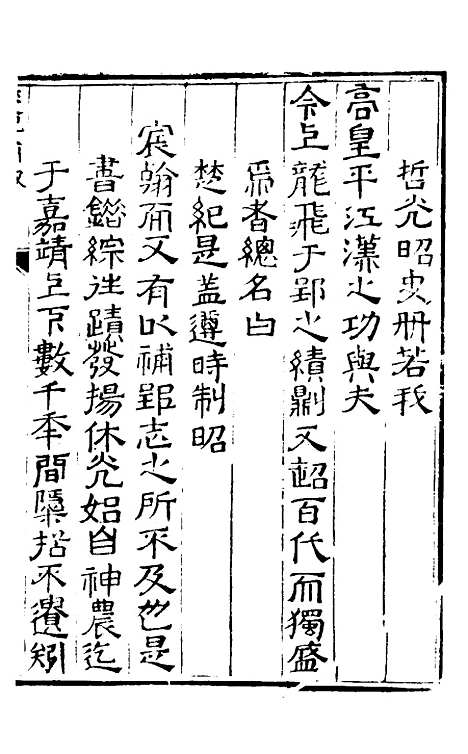 哲光昭史冊若我
高皇平江漢之功與夫
今上龍飛于郢之績則又超百代而獨盛
焉者總名曰
楚紀是蓋遵時制昭
宸翰而又有以補郢志之所不及也是
書錯綜往蹟發揚休光始自神農迄
于嘉靖上下數千年間櫽括不遺矧